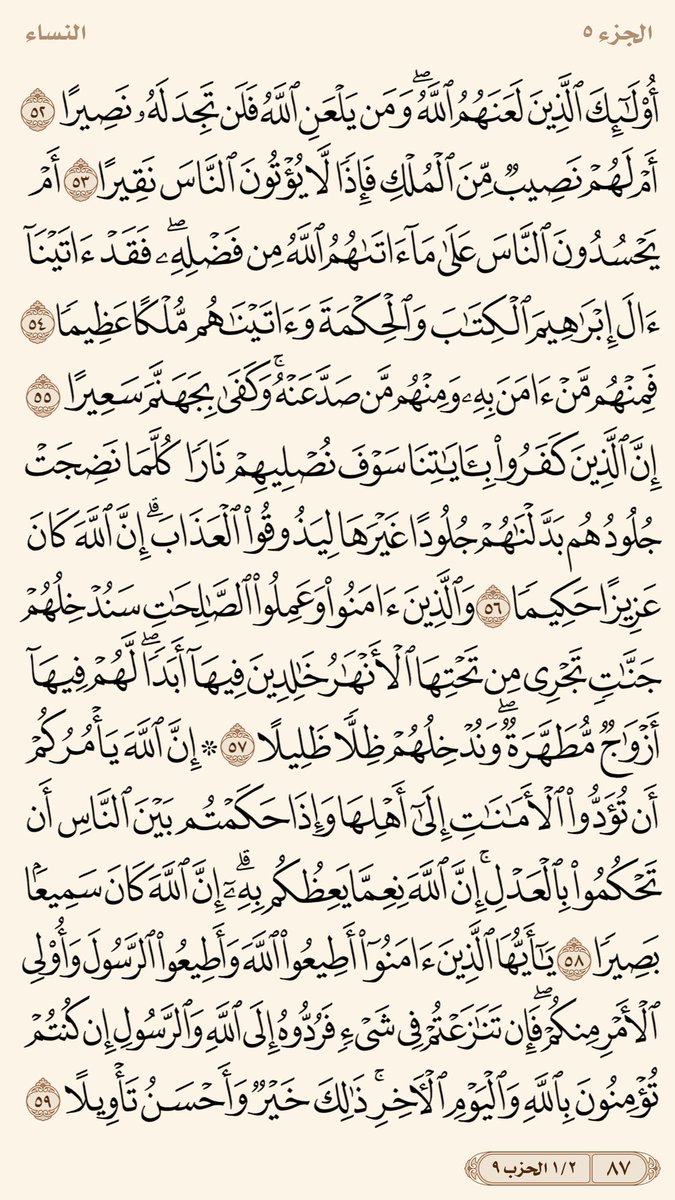 الجزء ٥
النساء
أُوْلَٰٓئِكَ ٱلَّذِينَ لَعَنَهُمُ ٱللَّهُۖ وَمَن يَلْعَنِ ٱللَّهُ فَلَن تَجِدَ لَهُۥ نَصِيرًا ٥٢
أَمْ لَهُمْ نَصِيبٌ مِّنَ ٱلْمُلْكِ فَإِذًا لَّا يُؤْتُونَ ٱلنَّاسَ نَقِيرًا ٥٣ أَمْ
يَحْسُدُونَ ٱلنَّاسَ عَلَىٰ مَآ ءَاتَىٰهُمُ ٱللَّهُ مِن فَضْلِهِۦۖ فَقَدْ ءَاتَيْنَآ
ءَالَ إِبْرَٰهِيمَ ٱلْكِتَٰبَ وَٱلْحِكْمَةَ وَءَاتَيْنَٰهُم مُّلْكًا عَظِيمًا ٥٤
فَمِنْهُم مَّنْ ءَامَنَ بِهِۦ وَمِنْهُم مَّن صَدَّ عَنْهُۚ وَكَفَىٰ بِجَهَنَّمَ سَعِيرًا ٥٥
إِنَّ ٱلَّذِينَ كَفَرُواْ بِـَٔايَٰتِنَا سَوْفَ نُصْلِيهِمْ نَارًا كُلَّمَا نَضِجَتْ
جُلُودُهُم بَدَّلْنَٰهُمْ جُلُودًا غَيْرَهَا لِيَذُوقُواْ ٱلْعَذَابَۗ إِنَّ ٱللَّهَ كَانَ
عَزِيزًا حَكِيمًا ٥٦ وَٱلَّذِينَ ءَامَنُواْ وَعَمِلُواْ ٱلصَّٰلِحَٰتِ سَنُدْخِلُهُمْ
جَنَّٰتٍ تَجْرِى مِن تَحْتِهَا ٱلْأَنْهَٰرُ خَٰلِدِينَ فِيهَآ أَبَدًاۖ لَّهُمْ فِيهَآ
أَزْوَٰجٌ مُّطَهَّرَةٌۖ وَنُدْخِلُهُمْ ظِلًّا ظَلِيلًا ٥٧ ۞ إِنَّ ٱللَّهَ يَأْمُرُكُمْ
أَن تُؤَدُّواْ ٱلْأَمَٰنَٰتِ إِلَىٰٓ أَهْلِهَا وَإِذَا حَكَمْتُم بَيْنَ ٱلنَّاسِ أَن
تَحْكُمُواْ بِٱلْعَدْلِۚ إِنَّ ٱللَّهَ نِعِمَّا يَعِظُكُم بِهِۦٓۗ إِنَّ ٱللَّهَ كَانَ سَمِيعًۢا
بَصِيرًا ٥٨ يَٰٓأَيُّهَا ٱلَّذِينَ ءَامَنُوٓاْ أَطِيعُواْ ٱللَّهَ وَأَطِيعُواْ ٱلرَّسُولَ وَأُوْلِى
ٱلْأَمْرِ مِنكُمْۖ فَإِن تَنَٰزَعْتُمْ فِى شَىْءٍ فَرُدُّوهُ إِلَى ٱللَّهِ وَٱلرَّسُولِ إِن كُنتُمْ
تُؤْمِنُونَ بِٱللَّهِ وَٱلْيَوْمِ ٱلْأٓخِرِۚ ذَٰلِكَ خَيْرٌ وَأَحْسَنُ تَأْوِيلًا ٥٩
٨٧
١/٢ الحزب ٩